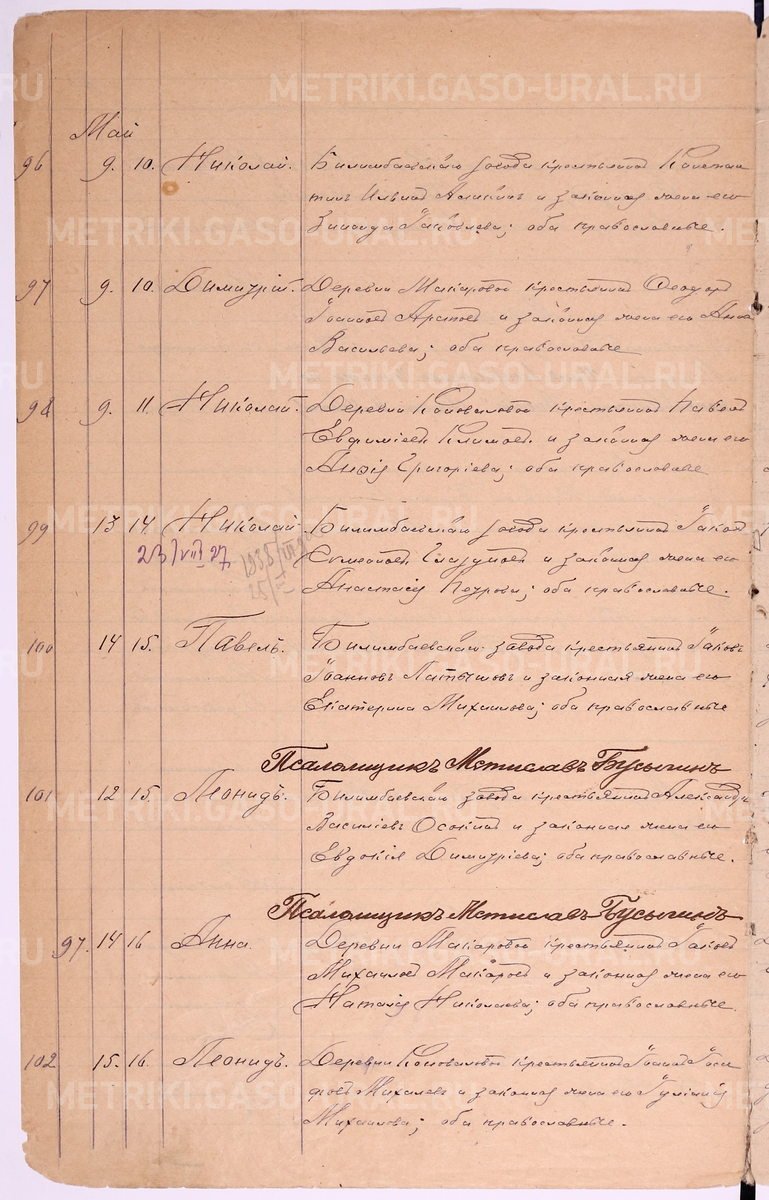 METRIKI.GASO-URAL.RU
Май
96 9. 10. Николай. Билимбаевскаго завода крестьянинъ Констан
тинъ Ильинъ и законная жена его
Зинаида Яковлева; оба православные.
97 9. 10. Димитрій. Деревни Макаровой крестьянинъ Ѳеодоръ
Ивановъ и законная жена его Анна
Васильева; оба православные
98 9. 11. Николай. Деревни Коноваловой крестьянинъ Павелъ
Евфиміевъ Климовъ и законная жена его
Григоріева; оба православные
99 13 14. Николай Билимбаевскаго завода крестьянинъ Яковъ
23/VIII 27 Симеоновъ Глазуновъ и законная жена его
Анастасія Петрова; оба православные.
100 14 15. Павелъ. Билимбаевскаго завода крестьянинъ Яковъ
Ивановъ Латышовъ и законная жена его
Екатерина Михаилова; оба православные
Псаломщикъ Мстиславъ Бусыгинъ
101 12 15. Леонидъ. Билимбаевскаго завода крестьянинъ Александръ
Василіевъ Осокинъ и законная жена его
Евдокія Димитріева; оба православные.
Псаломщикъ Мстиславъ Бусыгинъ
97. 14 16 Анна. Деревни Макаровой крестьянинъ Яковъ
Михаиловъ Макаровъ и законная жена его
Наталія Николаева; оба православные.
102 15. 16. Леонидъ. Деревни Коноваловой крестьянинъ Иванъ Іоси
фовъ Михалевъ и законная жена его Іуліанія
Михаилова; оба православные.